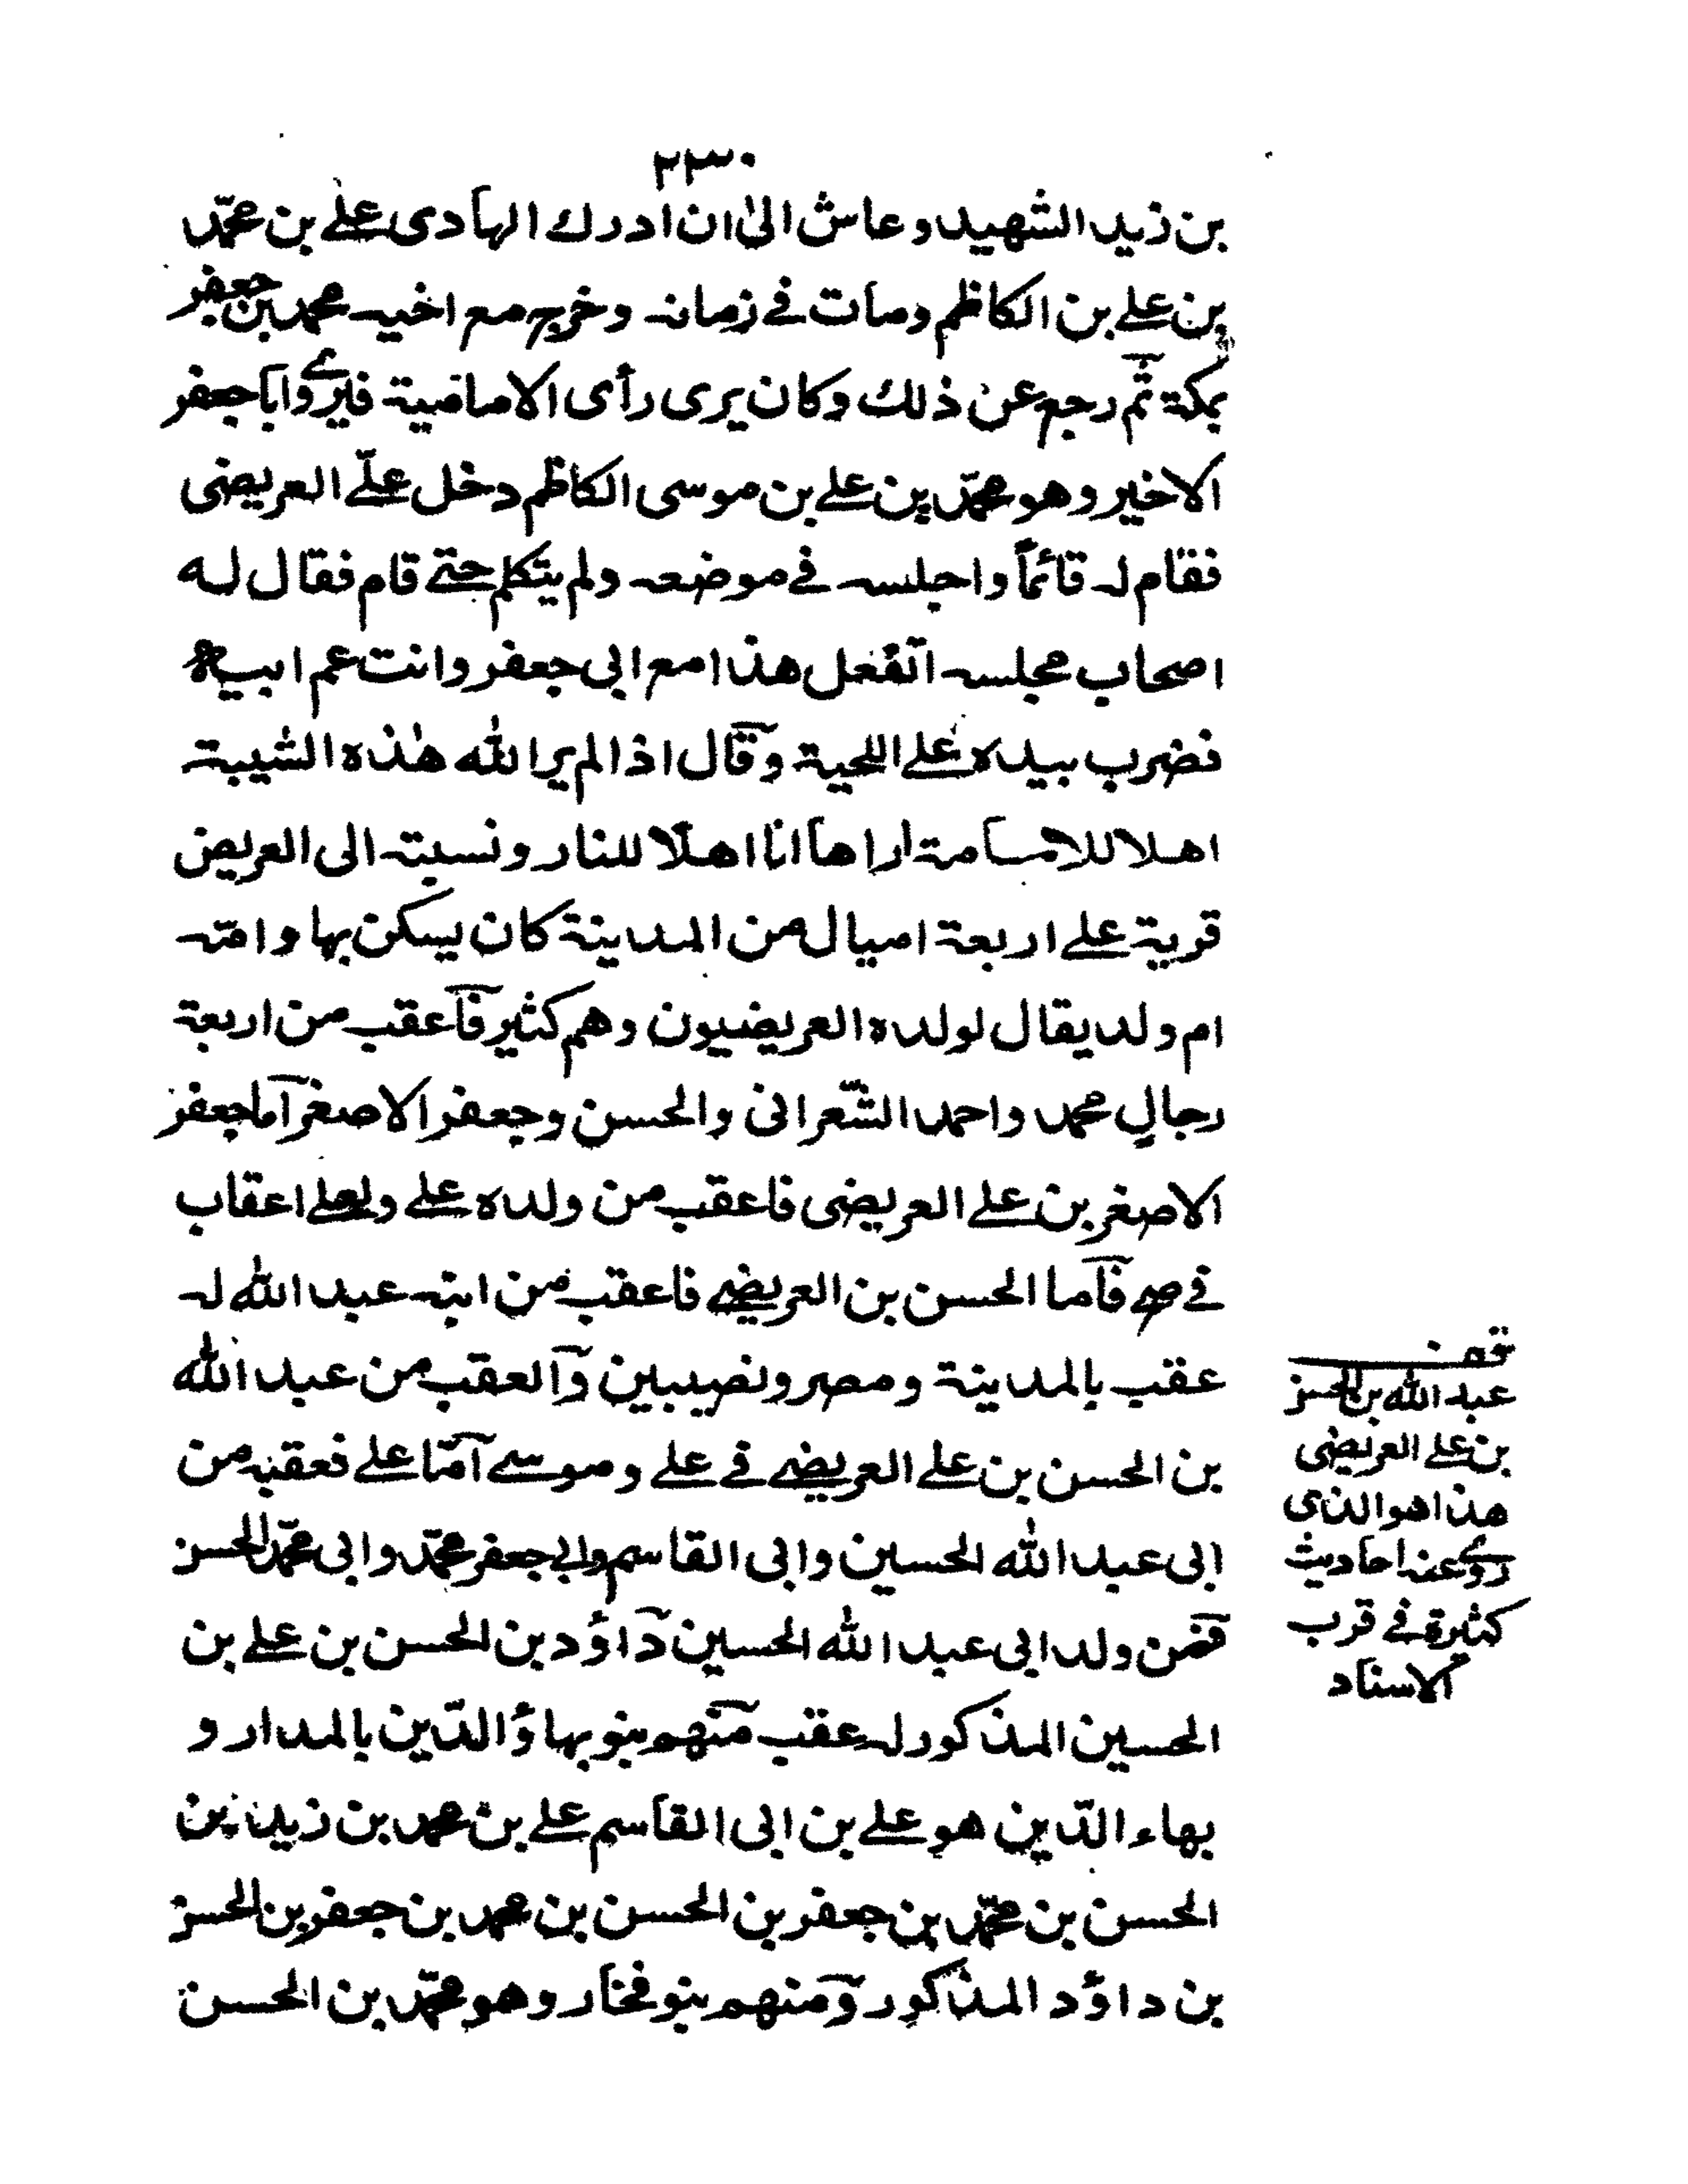 ٢٣٠
بن زيد الشهيد وعاش الىٰ ان ادرك الهادى علے بن محمّد
بن علے بن الكاظم ومات فے زمانه وخرج مع اخيه محمد بن جعفر
بمكة ثم رجع عن ذلك وكان يرى رأى الامامية فيروے ان اباجعفر
الاخير وهو محمّد بن علے بن موسى الكاظم دخل علّے العريضى
فقام له قائماً واجلسه فے موضعه ولم يتكلم حتے قام فقال له
اصحاب مجلسه اتفعل هذا مع ابى جعفر وانت عم ابيه
فضرب بيده علے اللحية وقال اذا لم ير الله هٰذه الشيبة
اهلا للامامة اراها انا اهلا للنار ونسبته الى العريض
قرية علے اربعة اميال من المدينة كان يسكن بها وامّه
ام ولد يقال لولده العريضيون وهم كثير فاعقب من اربعة
رجال محمد واحمد الشّعرانى والحسن وجعفر الاصغر اما جعفر
الاصغر بن علے العريضى فاعقب من ولده علے ولعلے اعقاب
فے صح فاما الحسن بن العريضے فاعقب من ابنه عبد الله له
عقب بالمدينة ومصر ونصيبين والعقب من عبد الله
بن الحسن بن علے العريضے فے علے وموسے امّا علے فعقبه من
ابى عبد الله الحسين وابى القاسم وابى جعفر محمّد وابى محمّد الحسن
فمن ولد ابى عبد الله الحسين داؤد بن الحسن بن علے بن
الحسين المذكور له عقب منهم بنو بهاؤ الدّين بالمدار و
بهاء الدّين هو علے بن ابى القاسم علے بن محمد بن زيد بن
الحسن بن محمّد بن جعفر بن الحسن بن محمد بن جعفر بن الحسن
بن داؤد المذكور ومنهم بنو فخار وهو محمّد بن الحسن
عبد الله بن الحسن
بن علے العريضى
هذا هو الذى
روے عنه احاديث
كثيرة فے قرب
الاسناد